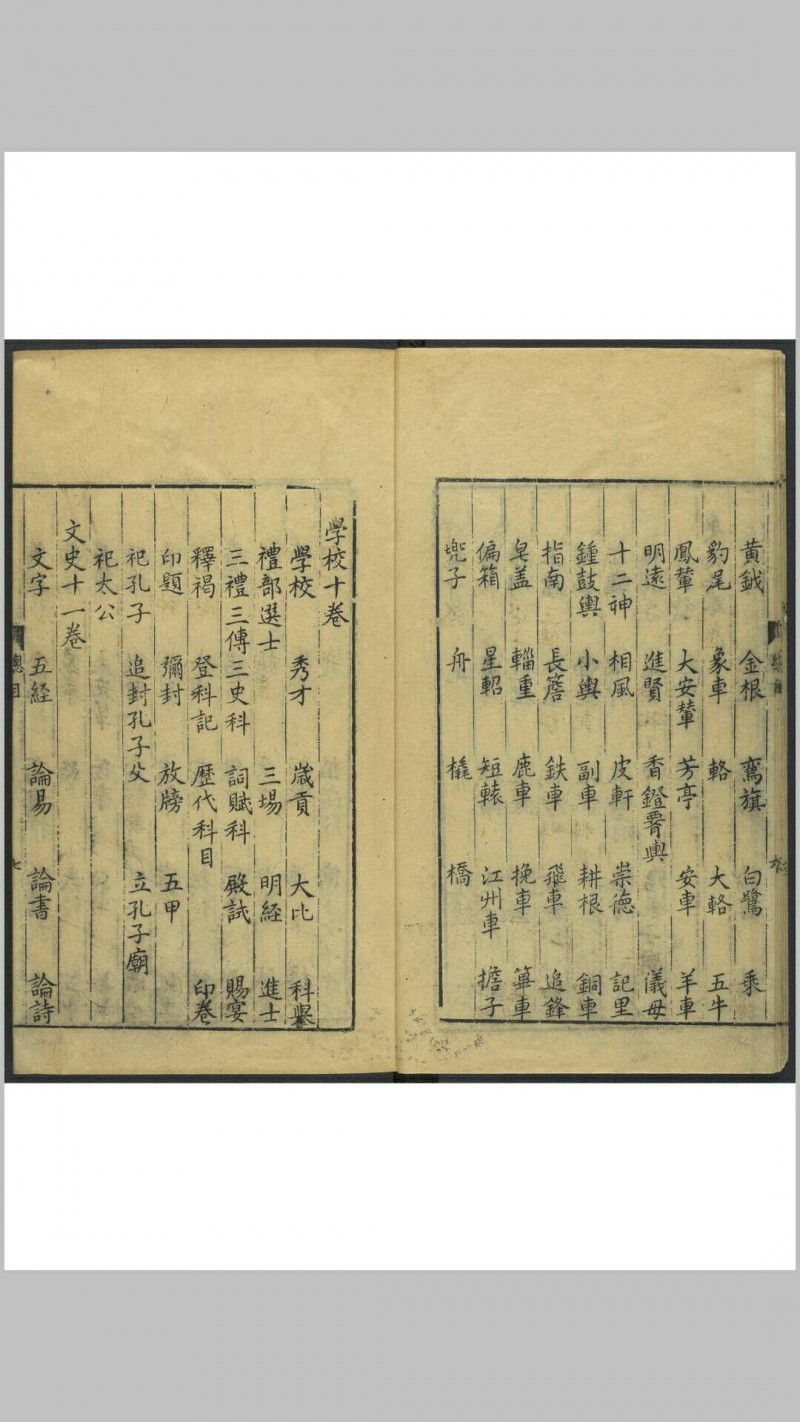 黄鉞 金根 鸞旗 白鷺 乘
豹尾 象車 輅 大輅 五牛
鳳輦 大安輦 芳亭 安車 羊車
明遠 進賢 香鐙 輿 儀母
十二神 相風 皮軒 崇德 記里
鍾鼓輿 小輿 副車 耕根 銅車
指南 長簷 鉄車 飛車 追鋒
皂盖 輜重 鹿車 挽車 篳車
偏箱 星軺 短轅 江州車 擔子
兜子 舟 橇 橋
學校十卷
學校 秀才 歲貢 大比 科舉
禮部選士 三場 明經 進士
三禮三傳三史科 詞賦科 殿試 賜宴
釋褐 登科記 歷代科目 印卷
印題 彌封 放牓 五甲
祀孔子 追封孔子父 立孔子廟
祀太公
文史十一卷
文字 五経 論易 論書 論詩
總目
七